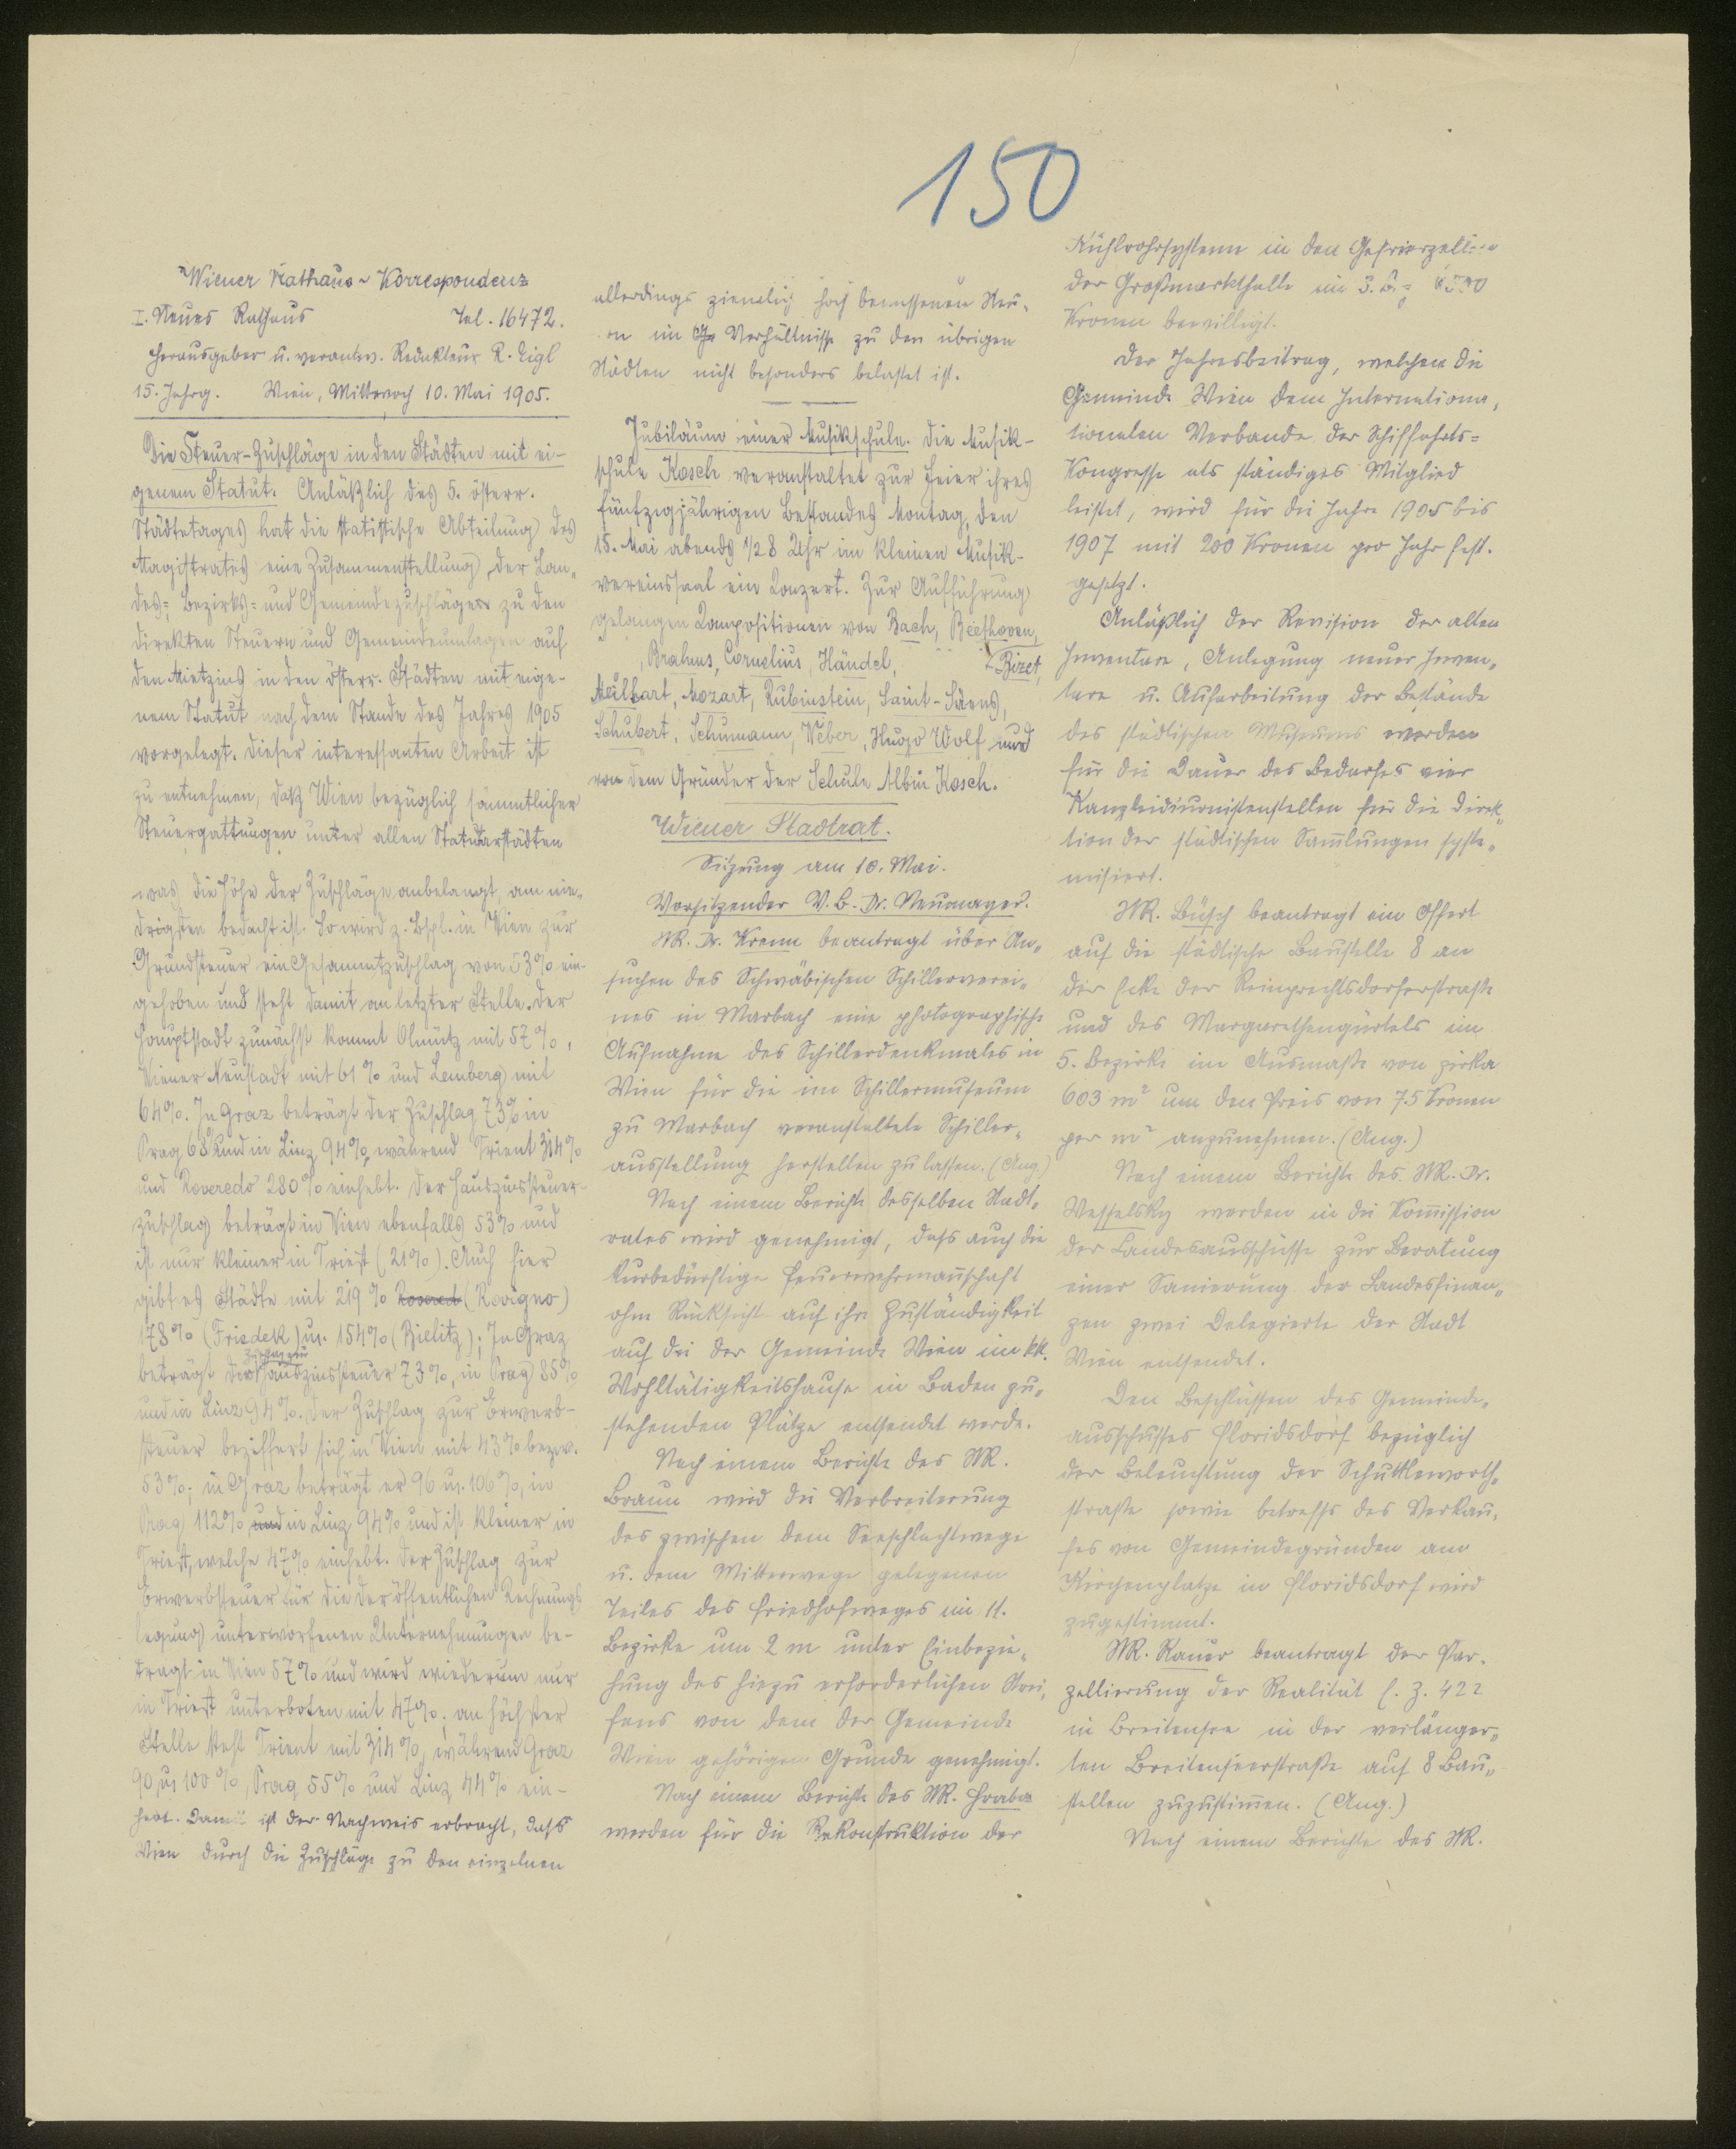 150
Wiener Rathaus-Korrespondenz
I. Neues Rathaus Tel. 16472.
Herausgeber u. verantw. Redakteur R. Eigl
15. Jahrg. Wien, Mittwoch 10. Mai 1905.
Die Steuer-Zuschläge in den Städten mit ei-
genem Statut. Anläßlich des 5. österr.
Städtetages hat die statistische Abteilung des
Magistrates eine Zusammenstellung der Lan-
des-, Bezirks- und Gemeindezuschläge zu den
direkten Steuern und Gemeindeumlagen auf
den Mietzins in den österr. Städten mit eige-
nem Statut nach dem Stande des Jahres 1905
vorgelegt. Dieser interessanten Arbeit ist
zu entnehmen, daß Wien bezüglich sämmtlicher
Steuergattungen unter allen Statutarstädten
was die Höhe der Zuschläge anbelangt, am nie-
drigsten bedacht ist. So wird z. Bspl. in Wien zur
Grundsteuer ein Gesammtzuschlag von 53% ein-
gehoben und steht damit an letzter Stelle. Der
Hauptstadt zunächst kommt Olmütz mit 57%,
Wiener Neustadt mit 61% und Lemberg mit
64%. In Graz beträgt der Zuschlag 73%, in
Prag 68% und in Linz 94%, während Trient 314%
und Roveredo 280% einhebt. Der Hauszinssteuer-
zuschlag beträgt in Wien ebenfalls 53% und
ist nur kleiner in Triest (21%). Auch hier
gibt es Städte mit 219% (Rovigno)
178% (Friedek) u. 154% (Bielitz); In Graz
beträgt der Zuschlag zur Hauszinssteuer 73%, in Prag 85%
und in Linz 94%. Der Zuschlag zur Erwerb-
steuer beziffert sich in Wien mit 43% bezw.
53%; in Graz beträgt er 96 u. 106%, in
Prag 112% und in Linz 94% und ist kleiner in
Triest, welche 47% einhebt. Der Zuschlag zur
Erwerbsteuer für die der öffentlichen Rechnungs
legung unterworfenen Unternehmungen be-
trägt in Wien 57% und wird wiederum nur
in Triest unterboten mit 47%; an höchster
Stelle steht Trient mit 314%, während Graz
90 u. 100%, Prag 55% und Linz 44% ein-
hebt. Damit ist der Nachweis erbracht, dass
Wien durch die Zuschläge zu den einzelnen
allerdings ziemlich hoch bemessenen Steu-
ern im Verhältnisse zu den übrigen
Städten nicht besonders belastet ist.
Jubiläum einer Musikschule. Die Musik-
schule Kosch veranstaltet zur Feier ihres
fünfzigjährigen Bestandes Montag, den
15. Mai abends 1/2 8 Uhr im kleinen Musik-
vereinssaal ein Konzert. Zur Aufführung
gelangen Kompositionen von Bach, Beethoven,
Brahms, Cornelius, Händel, Bizet,
Meilhart, Mozart, Rubinstein, Saint-Säens,
Schubert, Schumann, Weber, Hugo Wolf und
von dem Gründer der Schule Albin Kosch.
Wiener Stadtrat.
Sitzung am 10. Mai.
Vorsitzender V. B. Dr. Neumayer.
StR. Dr. Krenn beantragt über An-
suchen des Schwäbischen Schillerverei-
nes in Marbach eine photographische
Aufnahme des Schillerdenkmales in
Wien für die im Schillermuseum
zu Marbach veranstaltete Schiller-
ausstellung herstellen zu lassen. (Ang.)
Nach einem Berichte desselben Stadt-
rates wird genehmigt, dass auch die
kurbedürftige Feuerwehrmannschaft
ohne Rücksicht auf ihre Zuständigkeit
auf die der Gemeinde Wien im kk.
Wohltätigkeitshause in Baden zu-
stehenden Plätze entsendet werde.
Nach einem Berichte des StR.
Braun wird die Verbreiterung
des zwischen dem Seeschlachtwege
u. dem Mitterwege gelegenen
Teiles des Friedhofweges im 11.
Bezirke um 2 m unter Einbezie-
hung des hiezu erforderlichen Strei-
fens von dem der Gemeinde
Wien gehörigen Grunde genehmigt.
Nach einem Berichte des StR. Hraba
werden für die Rekonstruktion der
Kühlrohrsysteme in den Gefrierzellen
der Großmarkthalle im 3. B.
Kronen bewilligt.
Der Jahresbeitrag, welchen die
Gemeinde Wien dem Internationa-
tionalen Verbande der Schiffahrts-
Kongresse als ständiges Mitglied
leistet, wird für die Jahre 1905 bis
1907 mit 200 Kronen pro Jahr fest-
gesetzt.
Anläßlich der Revision der alten
Inventare, Anlegung neuer Inven-
tare u. Aufarbeitung der Bestände
des städtischen Museums werden
für die Dauer des Bedarfes vier
Kanzleidiurnistenstellen für die Direk-
tion der städtischen Sammlungen syste-
misiert.
StR. Büsch beantragt ein Offert
auf die städtische Baustelle 8 an
der Ecke der Reinprechtsdorferstraße
und des Margarethengürtels im
5. Bezirke im Ausmaße von zirka
603 m² um den Preis von 75 Kronen
per m² anzunehmen. (Ang.)
Nach einem Berichte des StR. Dr.
Wesselsky werden in die Kommission
der Landesausschüsse zur Beratung
einer Sanierung der Landesfinan-
zen zwei Delegierte der Stadt
Wien entsendet.
Den Beschlüssen des Gemeinde-
ausschusses Floridsdorf bezüglich
der Beleuchtung der Schuttleworth-
straße sowie betreffs des Verkau-
fes von Gemeindegründen am
Kirchenplatze in Floridsdorf wird
zugestimmt.
StR. Rauer beantragt der Par-
zellierung der Realität E. Z. 422
in Breitensee in der verlänger-
ten Breitenseerstraße auf 8 Bau-
stellen zuzustimmen. (Ang.)
Nach einem Berichte des StR.